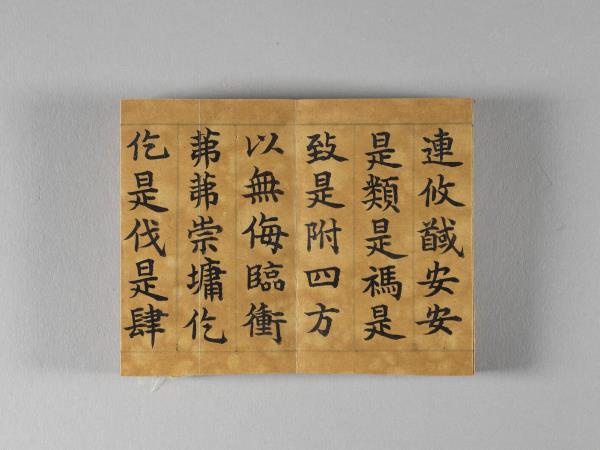 連攸馘安安
是類是禡是
致是附四方
以無侮臨衝
茀茀崇墉仡
仡是伐是肆